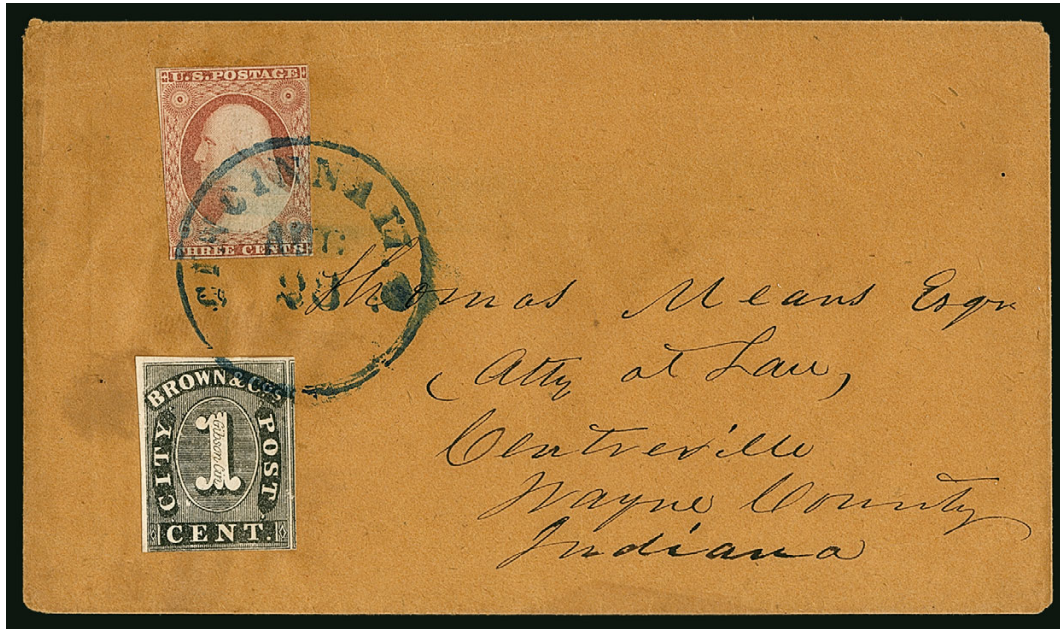 U.S. POSTAGE
THREE CENTS
CINCINNATI.
BROWN & CO'S
CITY POST
1
Gibson Cin
CENT.
Thomas Means Esqr
Atty at Law,
Centreville
Wayne County
Indiana